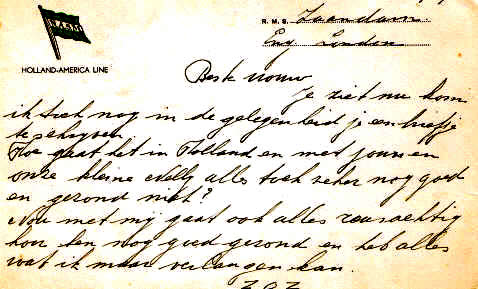 N.A.S.M.
HOLLAND-AMERICA LINE
R.M.S. Zaandam
Eng Linden
Beste vrouw
Je ziet nu kom
ik toch nog in de gelegenheid je een briefje
te schryven
Hoe gaat het in Holland en met jouw en
onze kleine Nelly alles toch zeker nog goed
en gezond niet?
Nou met mij gaat ook alles reusachtig
hoor ben nog goed gezond en heb alles
wat ik maar verlangen kan.
Z.O.Z